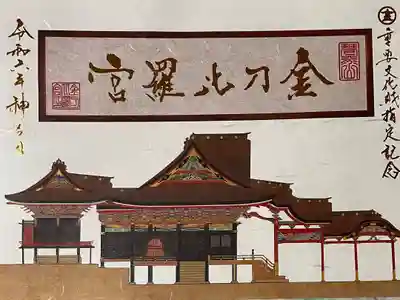 重要文化財指定記念
金刀比羅宮
令和六年神月